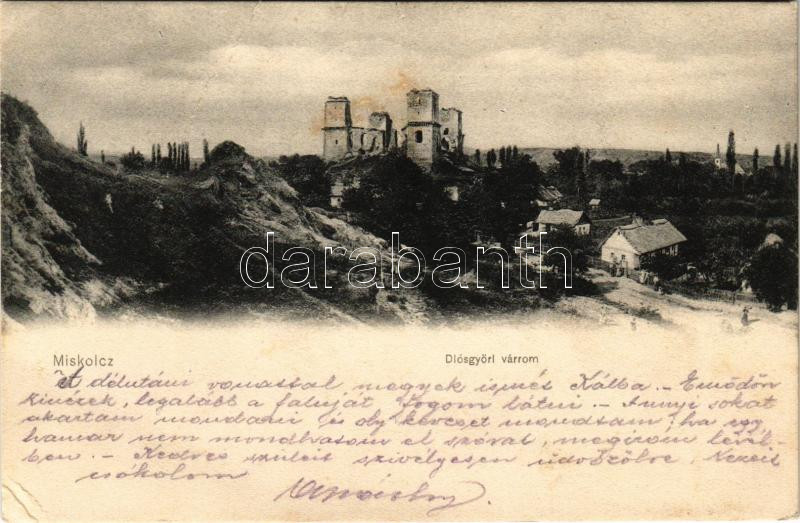 darabanth
Miskolcz
Diósgyőri várrom
A délutáni vonattal megyek ismét Kálba. – Emődön
kinézek, legalább a faluját fogom látni – Annyi sokat
akartam mondani és oly keveset mondtam; ha egy
hamar nem mondhatom el szóval, megírom levél-
ben. – Kedves szüleit szívélyesen üdvözölve, kezeit
csókolom